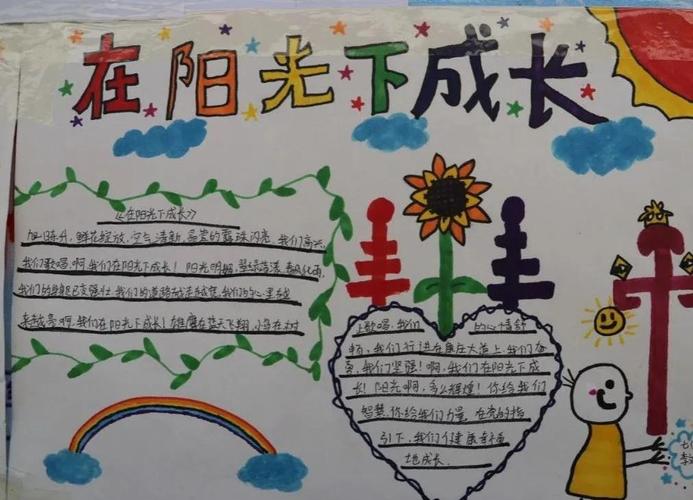 在阳光下成长
《在阳光下成长》
旭日东升，鲜花绽放，空气清新，晶莹的露珠闪亮，我们高兴，
我们歌唱，啊，我们在阳光下成长！阳光明媚，碧绿荡漾，春风化雨，
我们的身躯已变强壮，我们的道路越走越宽，我们的心里越
来越亮，啊，我们在阳光下成长！雄鹰在蓝天飞翔，小鸟在树
上歌唱，我们的心情舒
畅，我们行进在康庄大道上，我们勤
奋，我们坚强！啊，我们在阳光下成
长！阳光啊，多么辉煌！你给我们
智慧，你给我们力量，在党的指
引下，我们健康幸福
地成长。